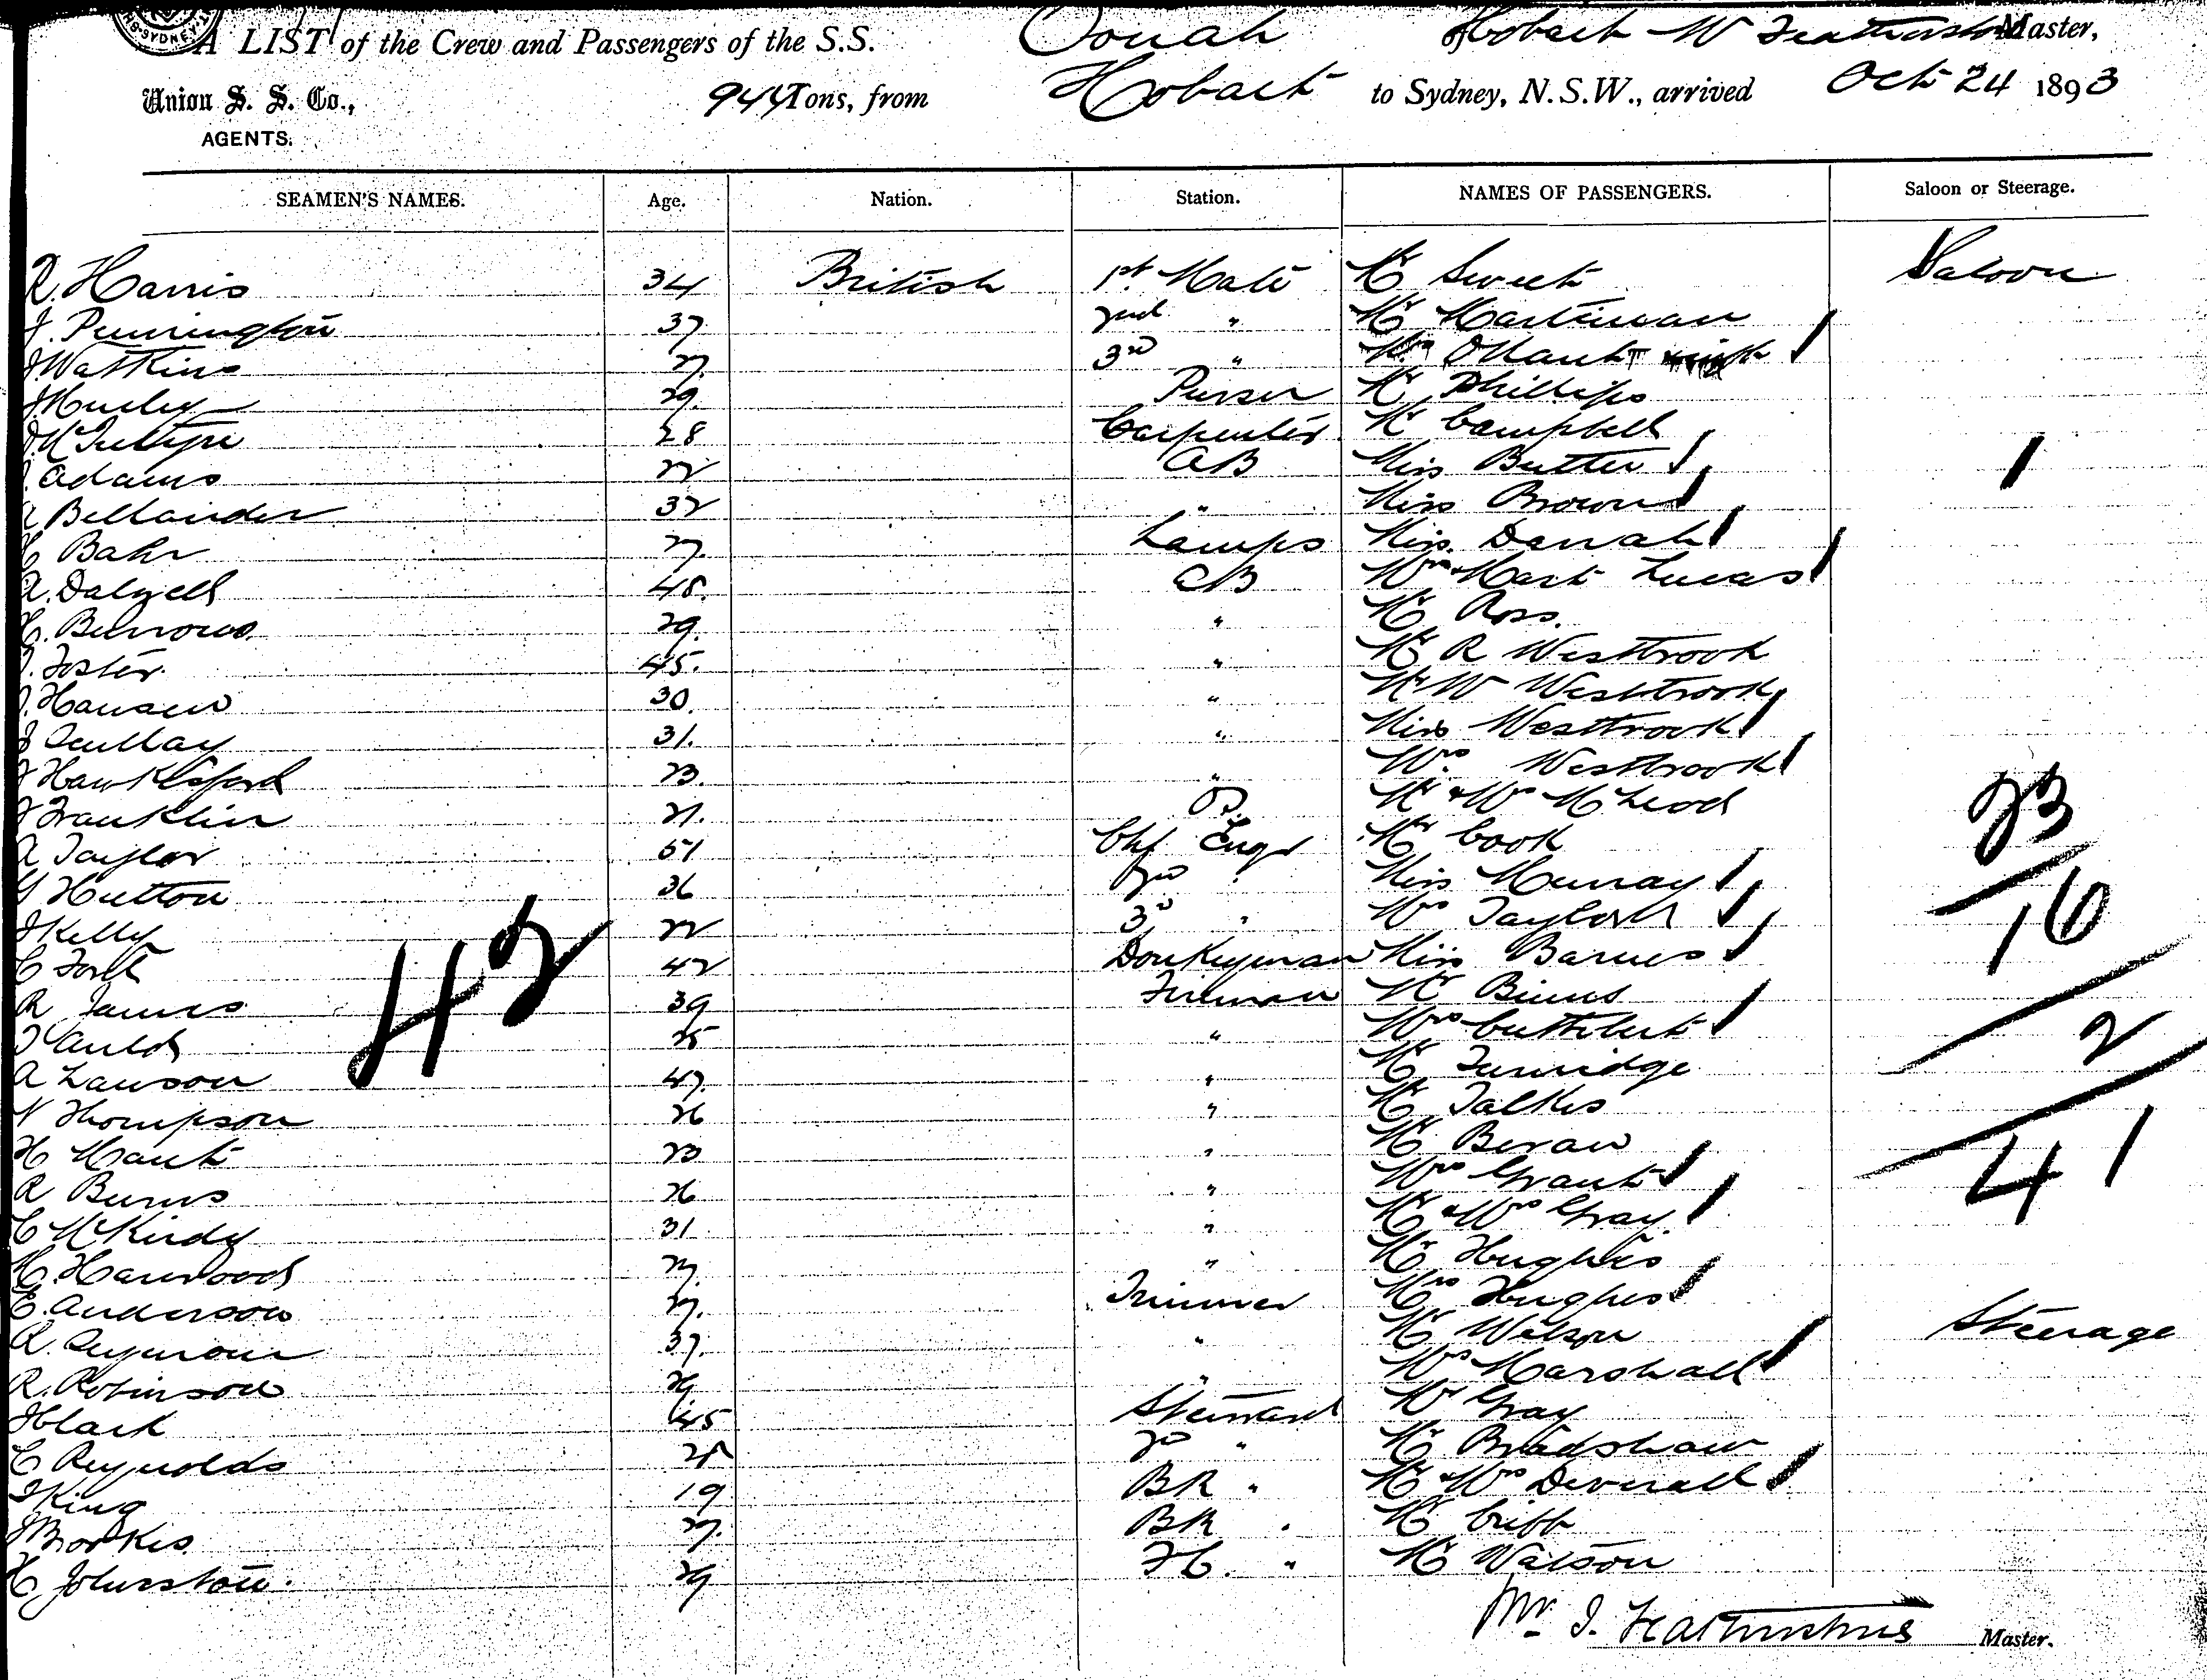 SYDNEY
A LIST of the Crew and Passengers of the S.S. Oonah of Hobart W Featherstone Master,
Union S. S. Co., AGENTS. 944 Tons, from Hobart to Sydney, N.S.W., arrived Oct 24 1893
SEAMEN'S NAMES. Age. Nation. Station. NAMES OF PASSENGERS. Saloon or Steerage.
R. Harris 34 British 1st Mate Mr Sweet Saloon
J. Pennington 37 2nd " Mr Martinean
J Watkins 27 3rd " Mrs
J Hurley 29 Purser Mr Phillips
McIntyre 28 Carpenter Mr Campbell
Adams 22 AB Miss Butter
Bellander 32 " Miss Brown
Bahr 27 Lamps Miss Darrah
A. Dalzell 48 AB Mrs & Mast Lucas
H. Burrows 29 " Mr Ross
J. Foster 45 " Mr R Westbrook
J. Hansen 30 " Mr W Westbrook
31 " Miss Westbrook
J Hawksford 23 " Mrs Westbrook
J Franklin 21 OS Mr & Mrs McLeod 23
A Taylor 51 Chf Engr Mr Cook
Hutton 36 2nd " Miss Murray
J Kelly 22 3rd " Mrs Taylor 16
C Forth 42 Donkeyman Miss Barnes
R James 39 Fireman Mr Binns
Auld 25 " Mrs Cuthbert 2
A Lawson 47 " Mr Turridge
42
N Thompson 26 " Mr Talkes
H Mant 23 " Mr Bevan
R Burns 26 " Mrs Grant 41
C McKirdy 31 " Mr & Mrs Gray
H. Harwood 27 " Mr Hughes
E. Anderson 27 Trimmer Mrs Hughes
A. Seymour 37 " Mr Wilson Steerage
R. Robinson 29 " Mrs Marshall
J Clark 45 Steward Mr Gray
C Reynolds 25 2nd " Mr Bradshaw
King 19 BR " Mr & Mrs Deverall
J Brookes 27 BR " Mr Cribb
H Johnstone 29 FC. " Mr Watson
Master.